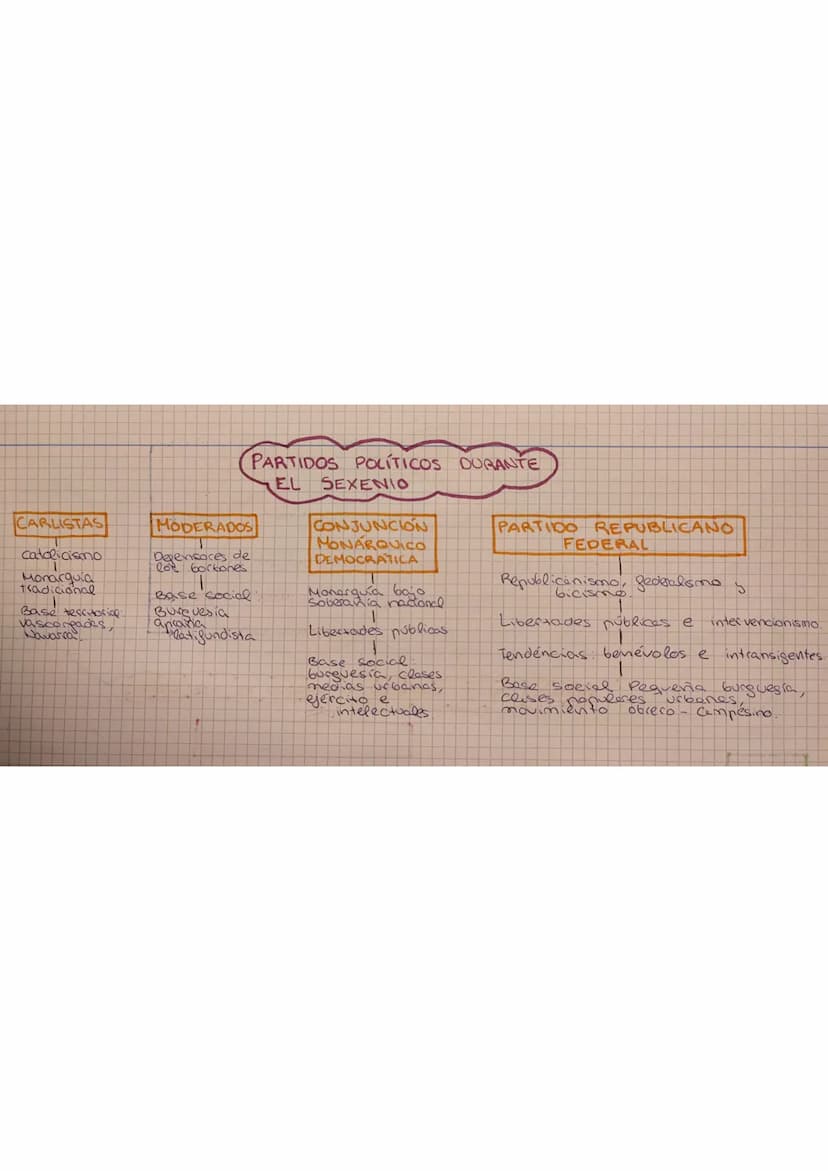 PARTIDOS POLÍTICOS DURANTE
EL SEXENIO
CARLISTAS
Catolicismo
Monarquía
tradicional
Base territorial:
vascongadas,
Navarra.
MODERADOS
Defensores de
los borbones
Base social:
Burguesía
agraria
latifundista
CONJUNCIÓN
MONÁRQUICO
DEMOCRATICA
Monarquía bajo
soberanía nacional
Libertades públicas
Base social:
burguesía, clases
medias urbanas,
ejército e
intelectuales
PARTIDO REPUBLICANO
FEDERAL
Republicanismo, federalismo y
laicismo.
Libertades públicas e intervencionismo.
Tendencias: benévolos e intransigentes
Base social: Pequeña burguesía,
clases populares urbanas,
movimiento obrero - campesino.